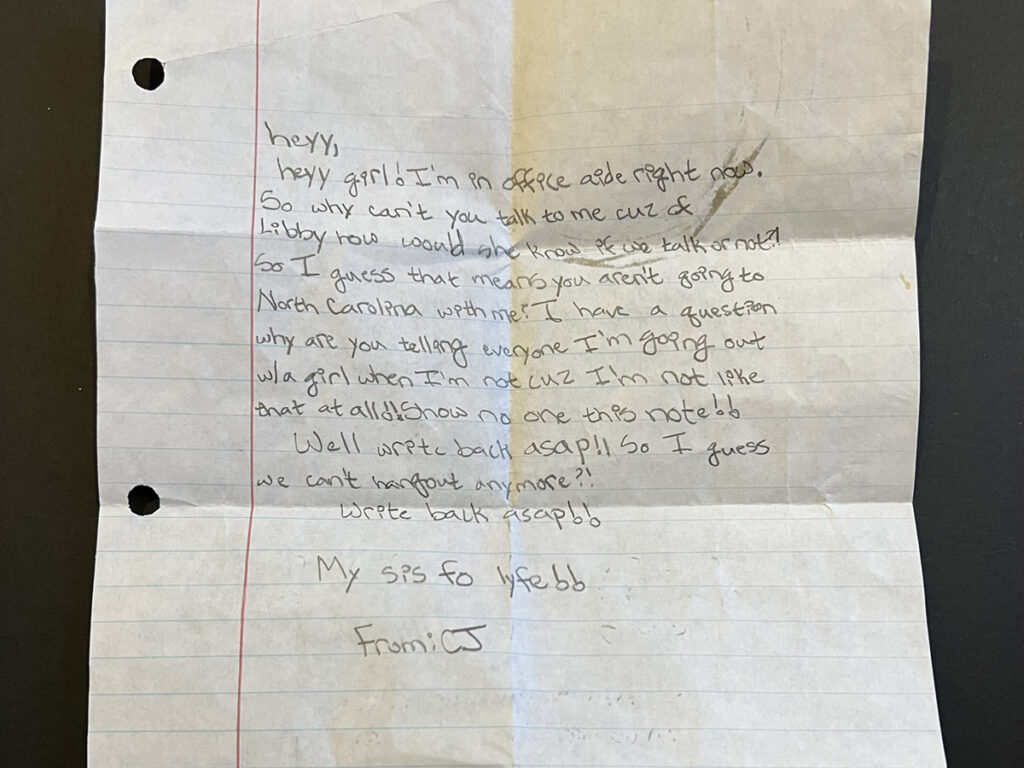 heyy,
heyy girl! I'm in office aide right now.
So why can't you talk to me cuz of
Libby how would she know if we talk or not?!
So I guess that means you aren't going to
North Carolina with me? I have a question
why are you telling everyone I'm going out
w/a girl when I'm not cuz I'm not like
that at all!!! Show no one this note!!
Well write back asap!! So I guess
we can't hangout anymore?!
Write back asap!!
My sis fo lyfe!!
From: CJ